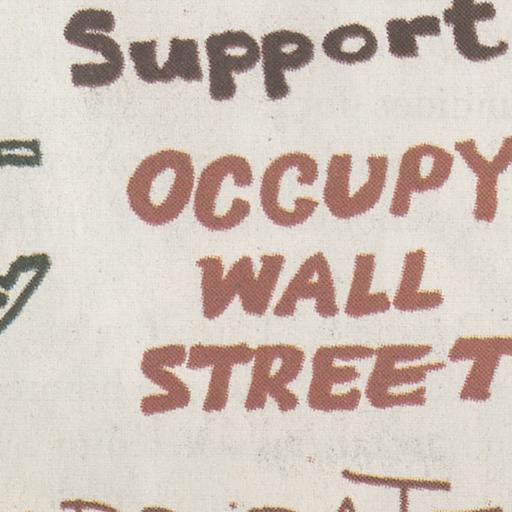 Support
OCCUPY
WALL
STREET